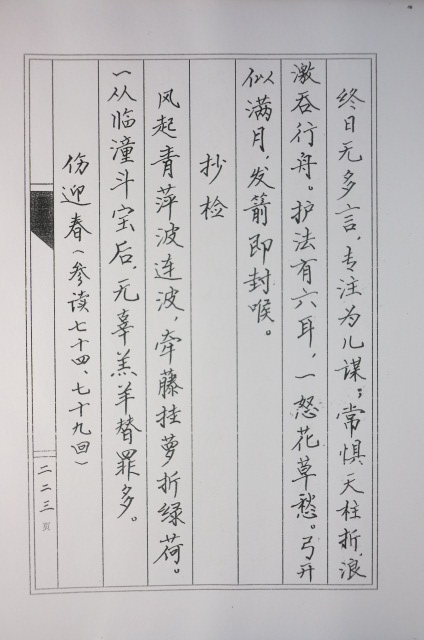 终日无多言，专注为儿谋；常惧天柱折，浪
激吞行舟。护法有六耳，一怒花草愁。弓开
似满月，发箭即封喉。
抄检
风起青萍波连波，牵藤挂萝折绿荷。
一从临潼斗宝后，无辜羔羊替罪多。
伤迎春（参读七十四、七十九回）
二二三页